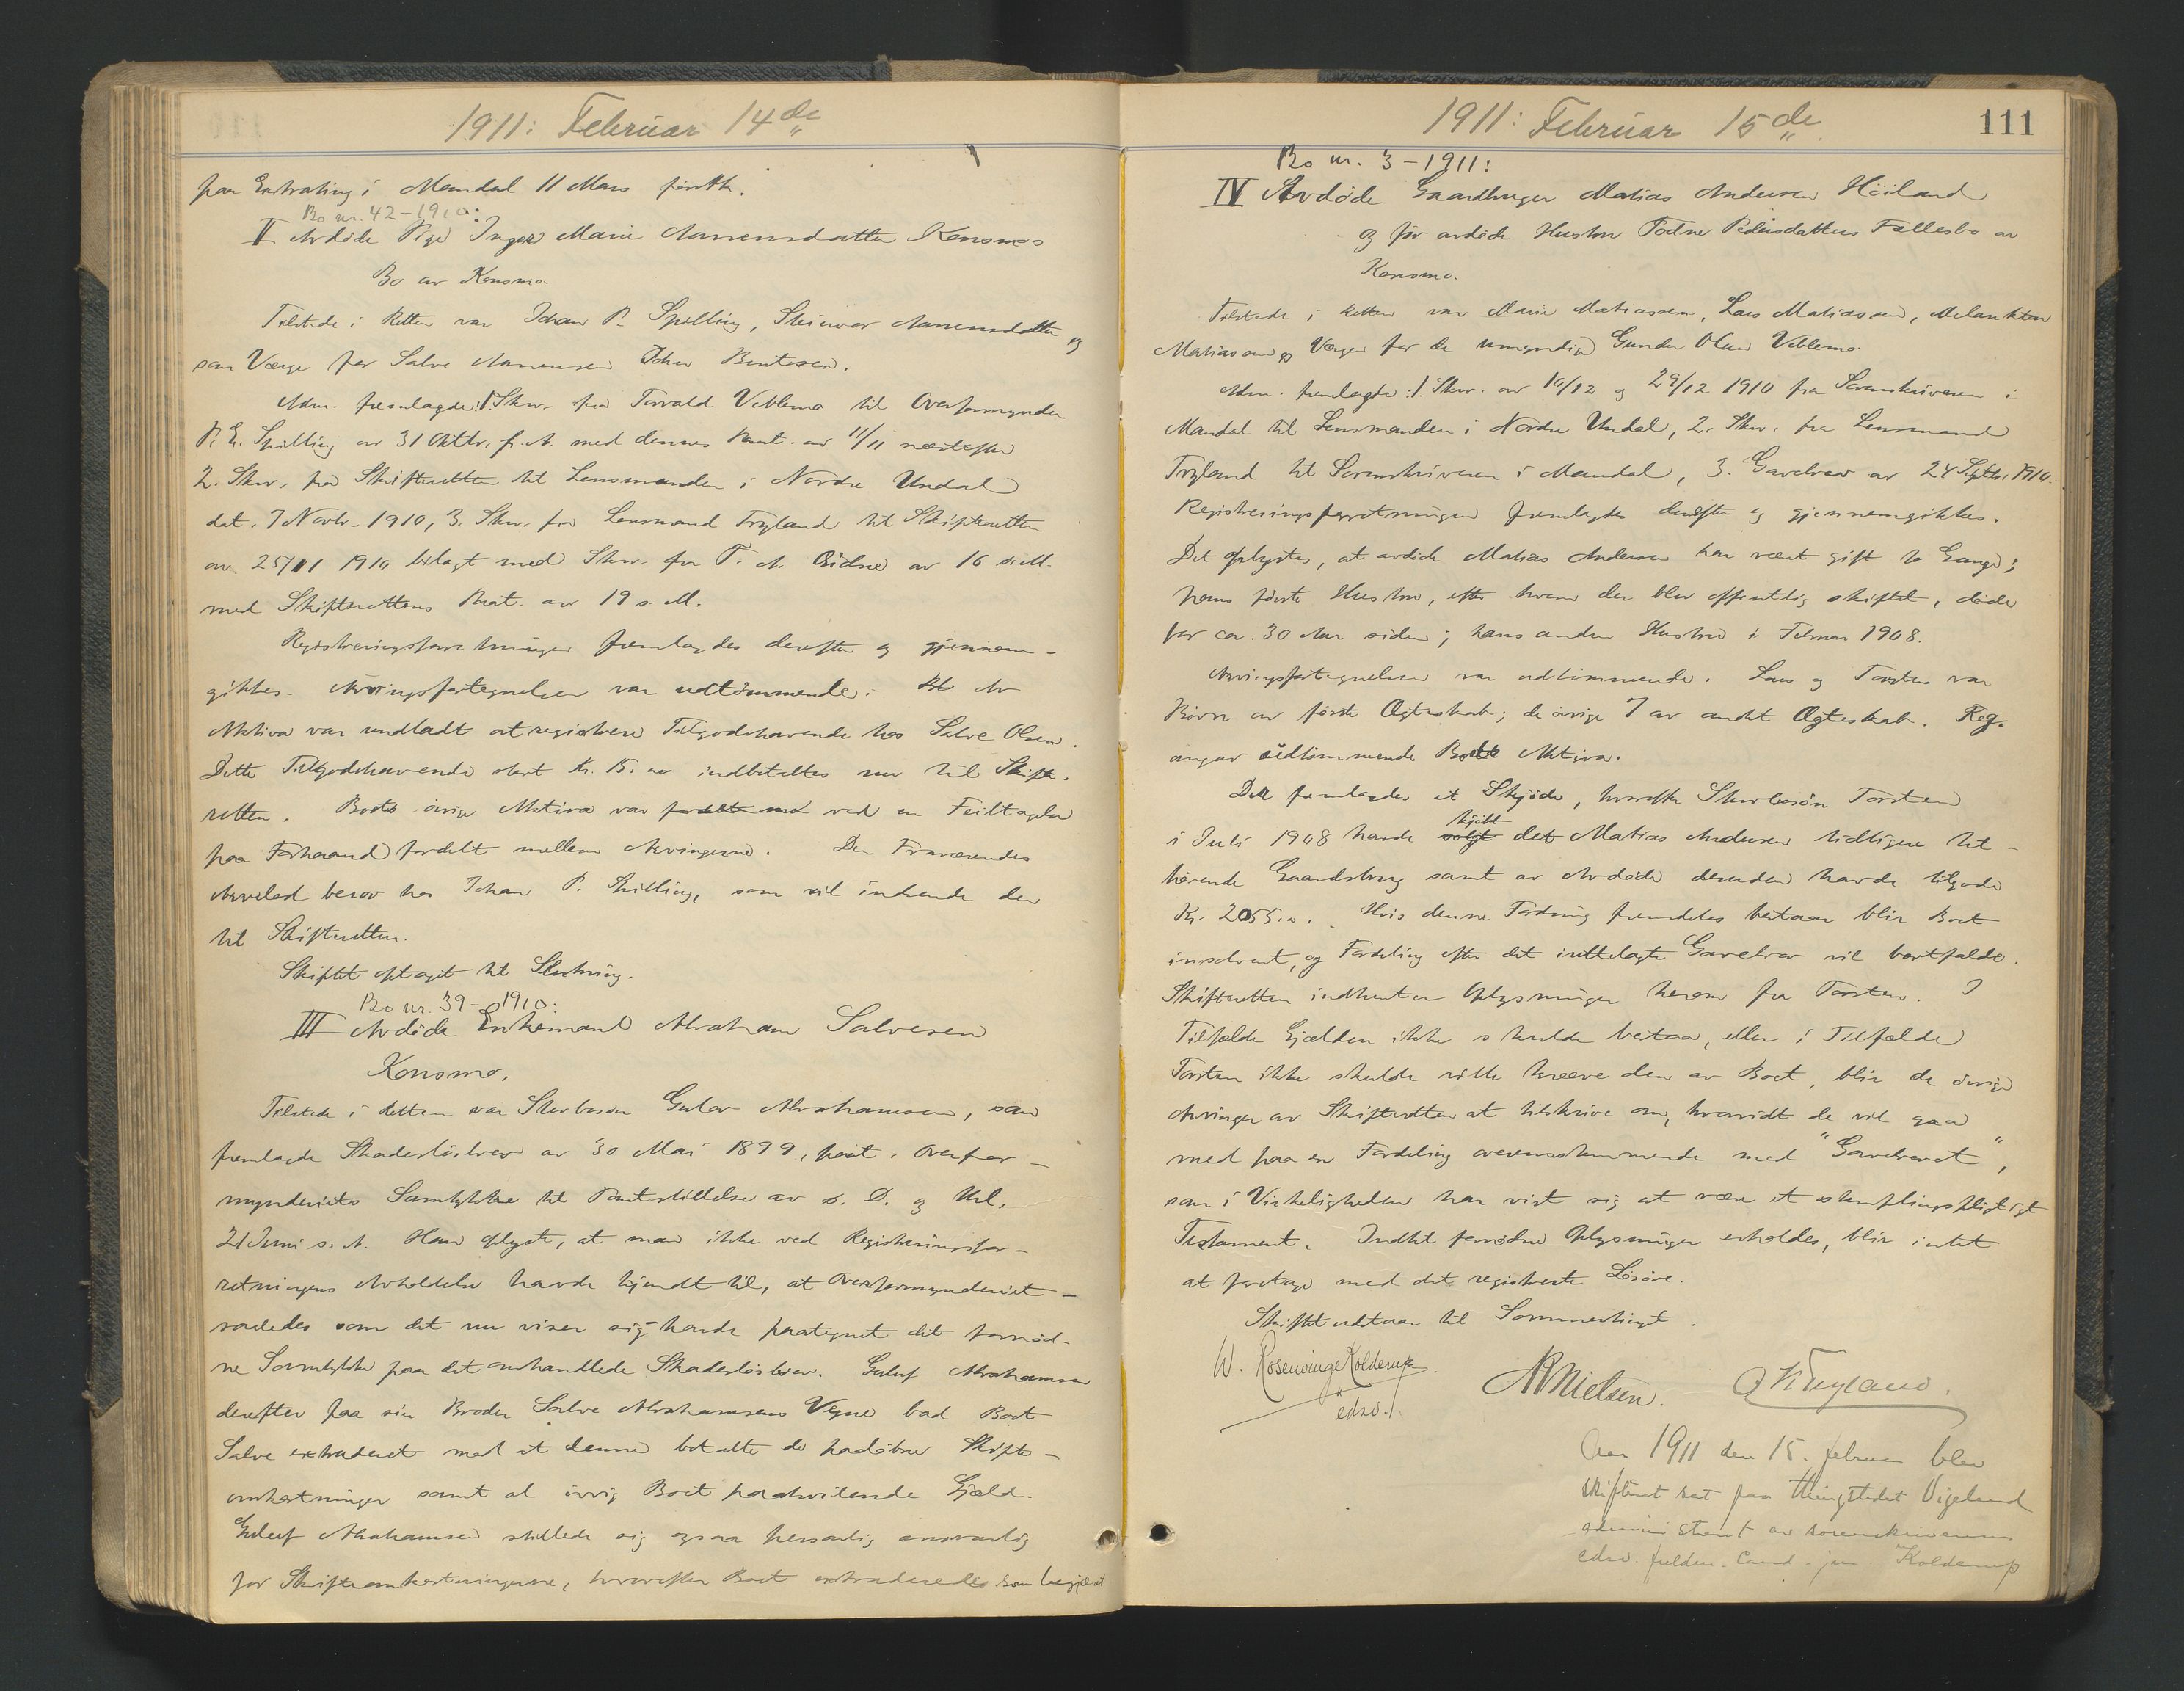 1911: Februar 14de
paa Extrating i Mandal 11 Mars förstk.
Bo nr. 42-1910:
II Avdöde Pige Inger Marie Aanensdatter Konsmos
Bo av Konsmo.
Tilstede i Retten var Johan P. Spilling, Steinvor Aanensdatter og
som Værge for Salve Aanensen John Bentsen.
Adm. fremlagde: 1. Skr. fra Torvald Veblemo til Overformynder
P. E. Spilling av 31 Oktbr. f. A. med dennes Paat. av 11/11 næstefter
2. Skr. fra Skifteretten til Lensmanden i Nordre Undal
dat. 7 Novbr. 1910, 3. Skr. fra Lensmand Tryland til Skifteretten
av 25/11 1910 bilagt med Skr. fra T. A. Eidne av 16 s. M.
med Skifterettens Paat. av 19 s. M.
Registreringsforretningen fremlagdes derefter og gjennem-
gikkes. Arvingsfortegnelsen var uttömmende. Av
Aktiva var undladt at registrere Tilgodehavende hos Salve Olsen.
Dette Tilgodehavende stort kr. 15.00 indbetaltes nu til Skifte-
retten. Boets övrige Aktiva var ved en Feiltagelse
paa Forhaand fordelt mellem Arvingerne. Den Fraværendes
Arvelod beror hos Johan P. Spilling, som vil indsende den
til Skifteretten.
Skiftet optaget til Slutning.
Bo nr. 39-1910:
III Avdöde Enkemand Abraham Salvesen
Konsmo.
Tilstede i Retten var Stervbosön Gulov Abrahamsen, som
fremlagde Skadeslösbrev av 30 Mai 1899, paat. Overfor-
mynderiets Samtykke til Pantstillelse av s. D. og thl.
21 Juni s. A. Han oplyste, at man ikke ved Registreringsfor-
retningens Avholdelse havde kjendt til, at Overformynderiet -
saaledes som det nu viser sig - havde paategnet det fornöd-
ne Samtykke paa det omhandlede Skadeslösbrev. Guluf Abrahamsen
derefter paa sin Broder Salve Abrahamsens Vegne bad Boet
Salve extraderet mod at denne betalte de paaløbne Skifte-
omkostninger samt al övrig Boet paahvilende Gjæld.
Guluf Abrahamsen stillede sig ogsaa personlig ansvarlig
for Skifteomkostningerne, hvorefter Boet extraderedes som begjæret
1911: Februar 15de
111
Bo nr. 3-1911:
IV Avdöde Gaardbruger Matias Andersen Höiland
og för avdöde Hustru Todne Pedersdatters Fællesbo av
Konsmo.
Tilstede i Retten var Marie Matiassen, Lars Matiassen, Melankton
Matiassen og Værgen for de umyndige Gunder Olsen Veblemo.
Adm. fremlagde: 1. Skr. av 10/12 og 29/12 1910 fra Sorenskriveren i
Mandal til Lensmanden i Nordre Undal, 2. Skr. fra Lensmand
Tryland til Sorenskriveren i Mandal, 3. Gavebrev av 24 Septbr. 1910.
Registreringsforretningen fremlagdes derefter og gjennemgikkes.
Det oplystes, at avdöde Matias Andersen har vært gift to Gange;
hans förste Hustru, efter hvem der blev offentlig skiftet, döde
for ca. 30 Aar siden; hans anden Hustru i Februar 1908.
Arvingsfortegnelsen var udtömmende. Lars og Torsten var
Börn av förste Ægteskab; de övrige 7 av andet Ægteskab. Reg.
angav udtömmende Boets Aktiva.
Der fremlagdes et Skjöde, hvorefter Stervbosön Torsten
kjöbt
i Juli 1908 havde solgt det Matias Andersen tidligere til-
hörende Gaardsbrug samt av Avdöde desuden havde tilgode
Kr. 2055.00. Hvis denne Fordring fremdeles bestaar blir Boet
insolvent, og Fordeling efter det inttelagte Gavebrev vil bortfalde.
Skifteretten indhenter Oplysninger herom fra Torsten. I
Tilfælde Gjælden ikke skulde bestaa, eller i Tilfælde
Torsten ikke skulde ville kræve den av Boet, blir de övrige
Arvinger av Skifteretten at tilskrive om, hvorvidt de vil gaa
med paa en Fordeling overensstemmende med "Gavebrevet",
som i Virkeligheden har vist sig at være et stemplingspligtigt
Testament. Indtil fornödne Oplysninger erholdes, blir intet
at foretage med det registrerte Lösöre.
Skiftet utstaar til Sommertinget.
W. Rosenvinge Kolderup
edsv.
AR Nielsen. O K Tryland.
Aar 1911 den 15. februar blev
skifteret sat paa thingstedet Vigeland
administrert av sorenskriverens
edsv. fuldm. Cand. jur. Kolderup